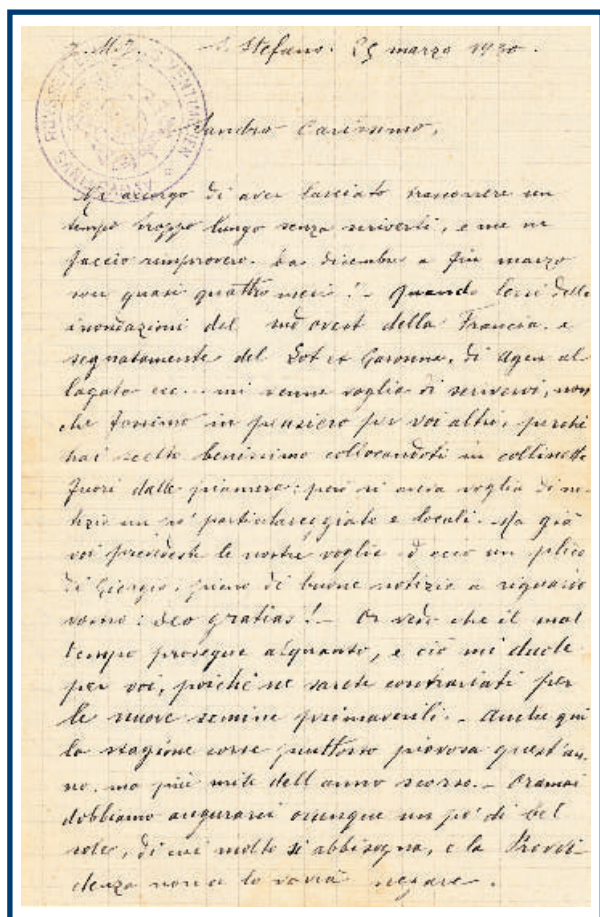 J. M. J. S. Stefano. 25 marzo 1930.
Sandro Carissimo,
Mi accorgo di aver lasciato trascorrere un
tempo troppo lungo senza scriverti, e me ne
faccio rimprovero. Da dicembre a fin marzo
son quasi quattro mesi! - Quando lessi delle
inondazioni del sud ovest della Francia e
segnatamente del Lot et Garonne, di Agen al
lagata ecc... mi venne voglia di scrivervi, non
che fossimo in pensiero per voi altri, perchè
hai scelto benissimo collocandoti in collinette
fuori dalle pianure: però si aveva voglia di no-
tizie un po' particolareggiate e locali. Ma già
voi precedeste le nostre voglie ed ecco un plico
di Giorgio, pieno di buone notizie a riguardo
vostro: deo gratias! - Or vedo che il mal
tempo prosegue alquanto, e ciò mi duole
per voi, poichè ne sarete contrariati per
le nuove semine primaverili. - Anche qui
la stagione corse piuttosto piovosa quest'an-
no, ma più mite dell'anno scorso. - Oramai
dobbiamo augurarci ovunque un po' di bel
sole, di cui molto si abbisogna, e la Provvi-
denza non ce lo vorrà negare.